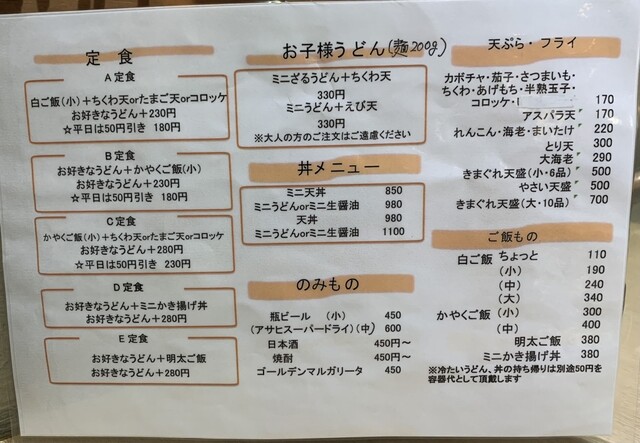 定 食
A 定食
白ご飯(小)+ちくわ天orたまご天orコロッケ
お好きなうどん+230円
☆平日は50円引き 180円
B 定食
お好きなうどん+かやくご飯(小)
お好きなうどん+230円
☆平日は50円引き 180円
C 定食
かやくご飯(小)+ちくわ天orたまご天orコロッケ
お好きなうどん+280円
☆平日は50円引き 230円
D 定食
お好きなうどん+ミニかき揚げ丼
お好きなうどん+280円
E 定食
お好きなうどん+明太ご飯
お好きなうどん+280円
お子様うどん(麺200g)
ミニざるうどん+ちくわ天
330円
ミニうどん+えび天
330円
※大人の方のご注文はご遠慮ください
丼メニュー
ミニ天丼 850
ミニうどんorミニ生醤油 980
天丼 980
ミニうどんorミニ生醤油 1100
のみもの
瓶ビール (小) 450
(アサヒスーパードライ)(中) 600
日本酒 450円~
焼酎 450円~
ゴールデンマルガリータ 450
天ぷら・フライ
カボチャ・茄子・さつまいも・
ちくわ・あげもち・半熟玉子・
コロッケ・ 170
アスパラ天 170
れんこん・海老・まいたけ 220
とり天 300
大海老 290
きまぐれ天盛(小・6品) 500
やさい天盛 500
きまぐれ天盛(大・10品) 700
ご飯もの
白ご飯 ちょっと 110
(小) 190
(中) 240
(大) 340
かやくご飯 (小) 300
(中) 400
明太ご飯 380
ミニかき揚げ丼 380
※冷たいうどん、丼の持ち帰りは別途50円を
容器代として頂戴します